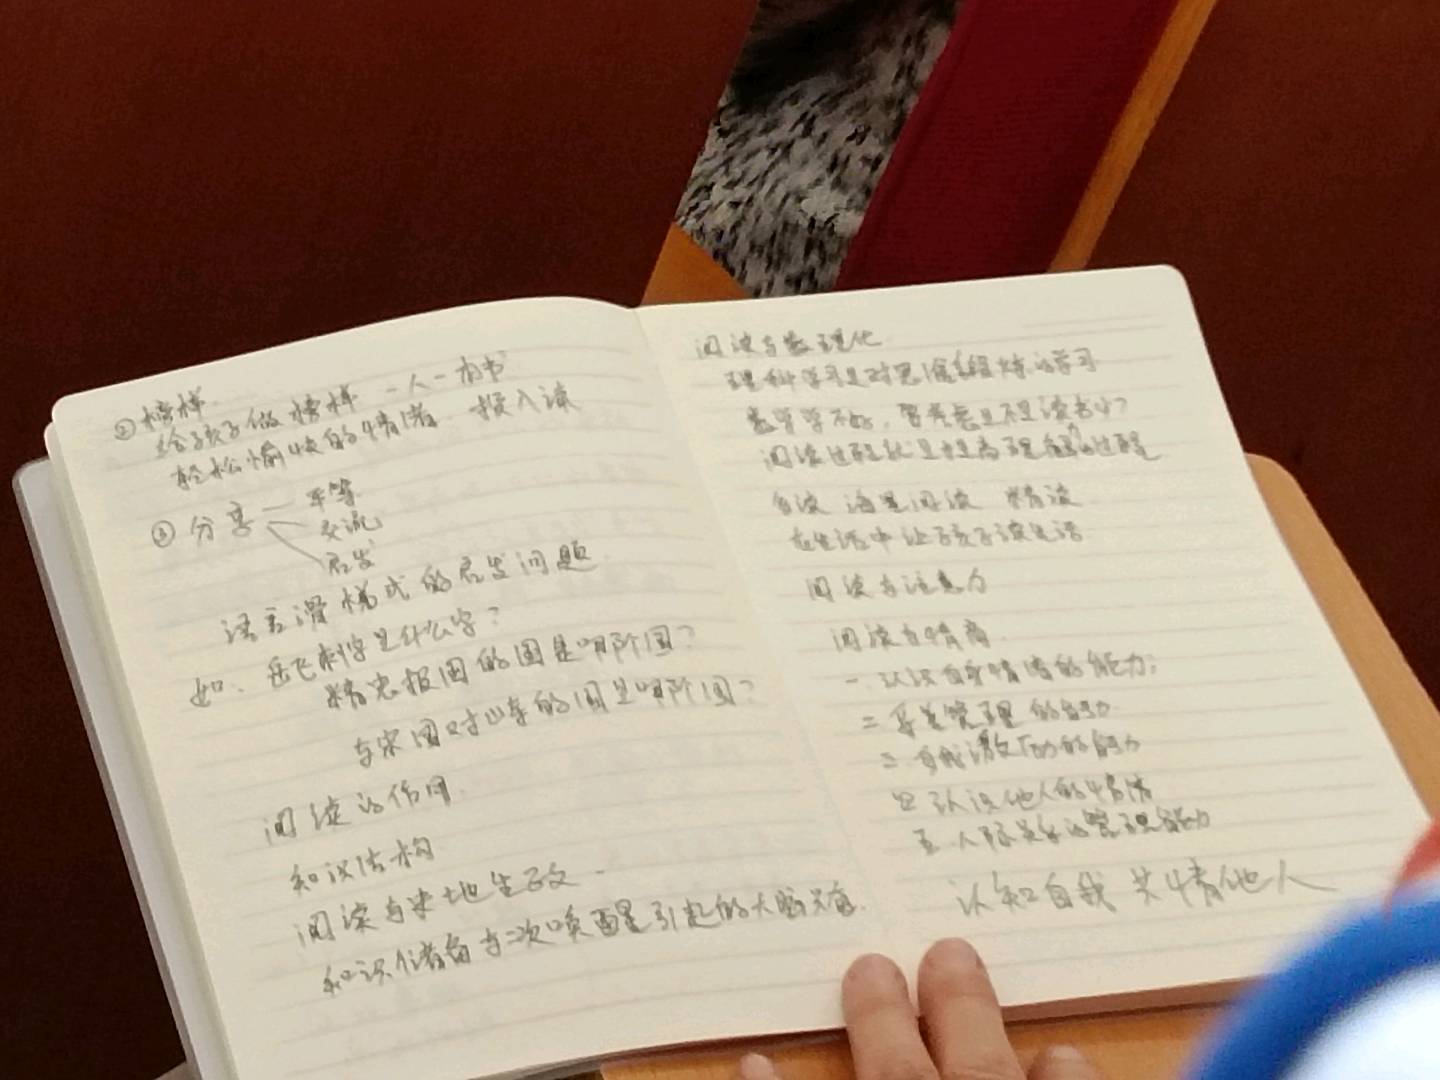 ②榜样
给孩子做榜样 一人一本书
轻松愉快的情绪 投入读
③分享 平等
交流
启发
语言滑梯式的启发问题
如、岳飞刺字是什么字?
精忠报国的国是哪个国?
与宋国对峙的国是哪个国?
阅读的作用
知识结构
阅读与史地生政
知识储备与二次唤醒引起的大脑兴奋
阅读与数理化
理科学习是对思维的学习
数学学不好,首先是不是读书少?
阅读过程就是提高理解的过程
海量阅读 精读
在生活中让孩子读生活
阅读与注意力
阅读与情商
一、认识自身情绪的能力;
二 管理的能力
三 自我激励的能力
四 认识他人的情绪
五 人际关系的管理能力
认知自我 共情他人